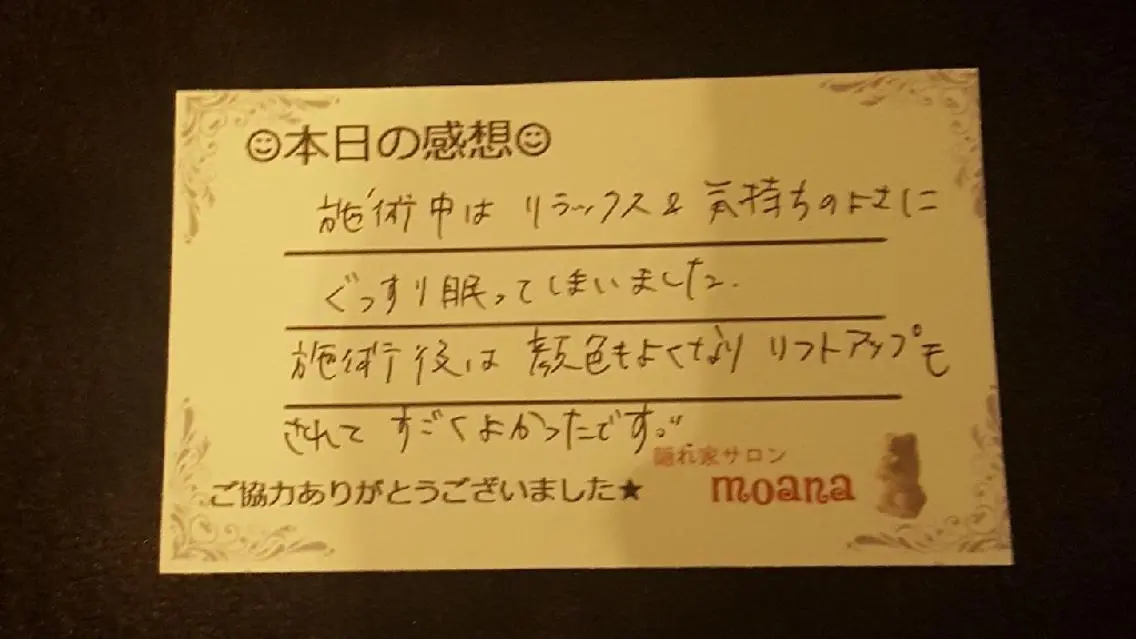 ☺本日の感想☺
施術中は リラックス& 気持ちのよさに
ぐっすり眠ってしまいました.
施術後は 顔色もよくなり リフトアップも
されて すごくよかったです。"
隠れ家サロン
moana
ご協力ありがとうございました★